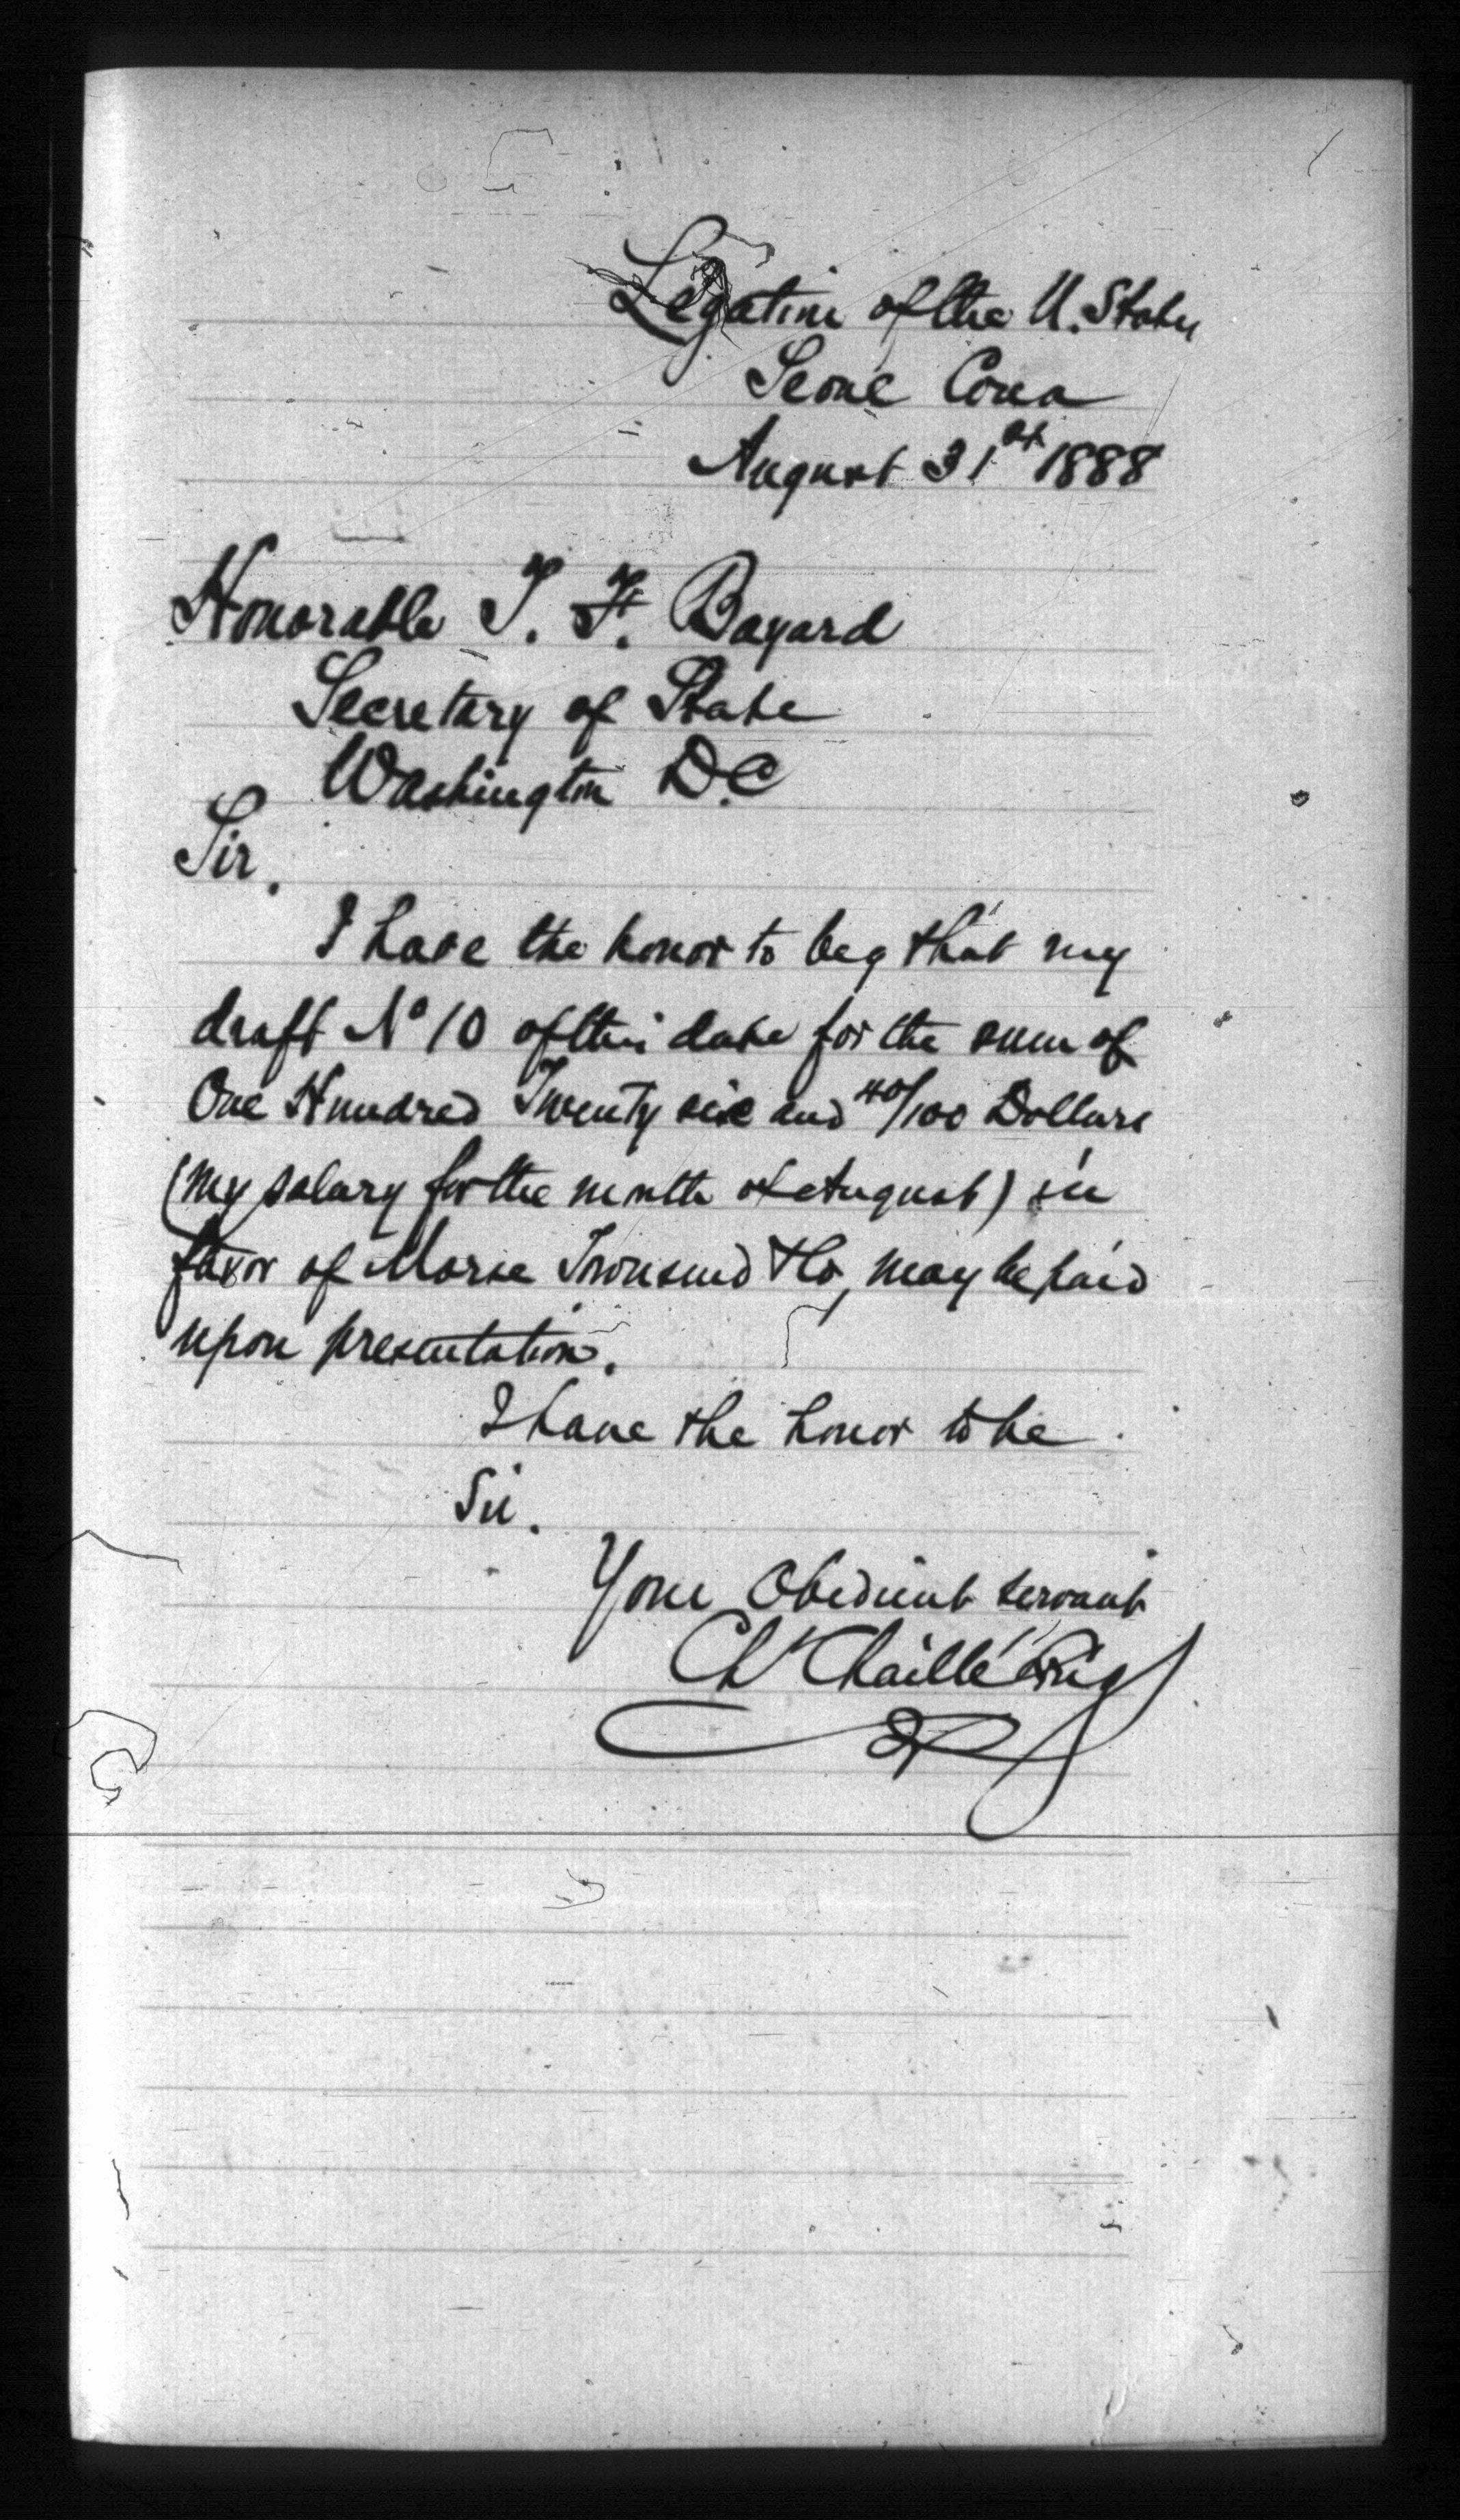 Legation of the U. States
Seoul Corea
August 31st 1888
Honorable T. F. Bayard
Secretary of State
Washington D.C
Sir.
I have the honor to beg that my
draft No 10 of this date for the sum of
One Hundred Twenty six and 40/100 Dollars
(my salary for the month of August) in
favor of Morse Townsend & Co, may be paid
upon presentation.
I have the honor to be
Sir.
Your Obedient servant
Ch Chaillé Long